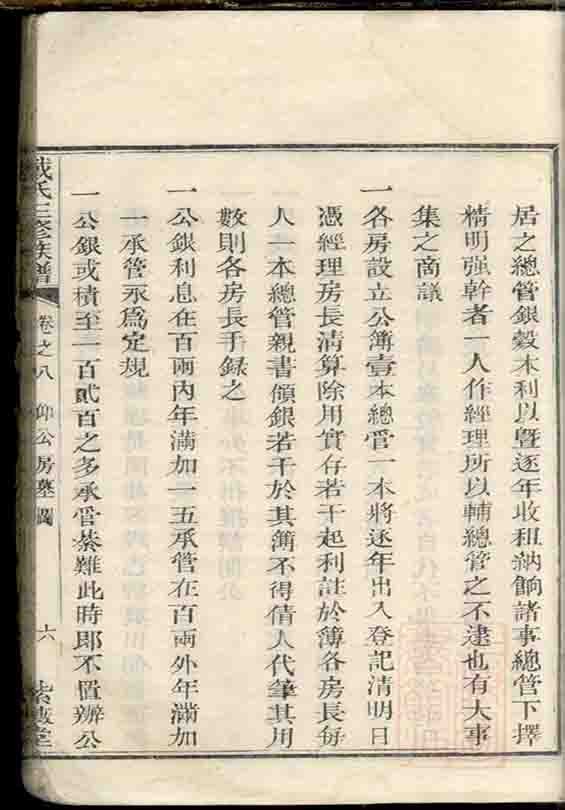 居之總管銀穀本利以曁逐年收租納餉諸事總管下擇
精明强幹者一人作經理所以輔總管之不逮也有大事
集之商議
一各房設立公簿壹本總管一本將逐年出入登記清明日
憑經理房長清算除用實存若干起利註於簿各房長每
人一本總管親書領銀若干於其簿不得倩人代筆其用
數則各房長手録之
一公銀利息在百兩內年滿加一五承管在百兩外年滿加
一承管永爲定規
一公銀或積至一百貳百之多承管綦難此時卽不置辦公
戴氏三修族譜 卷之八 仰公房墓圖 六 紫陵堂